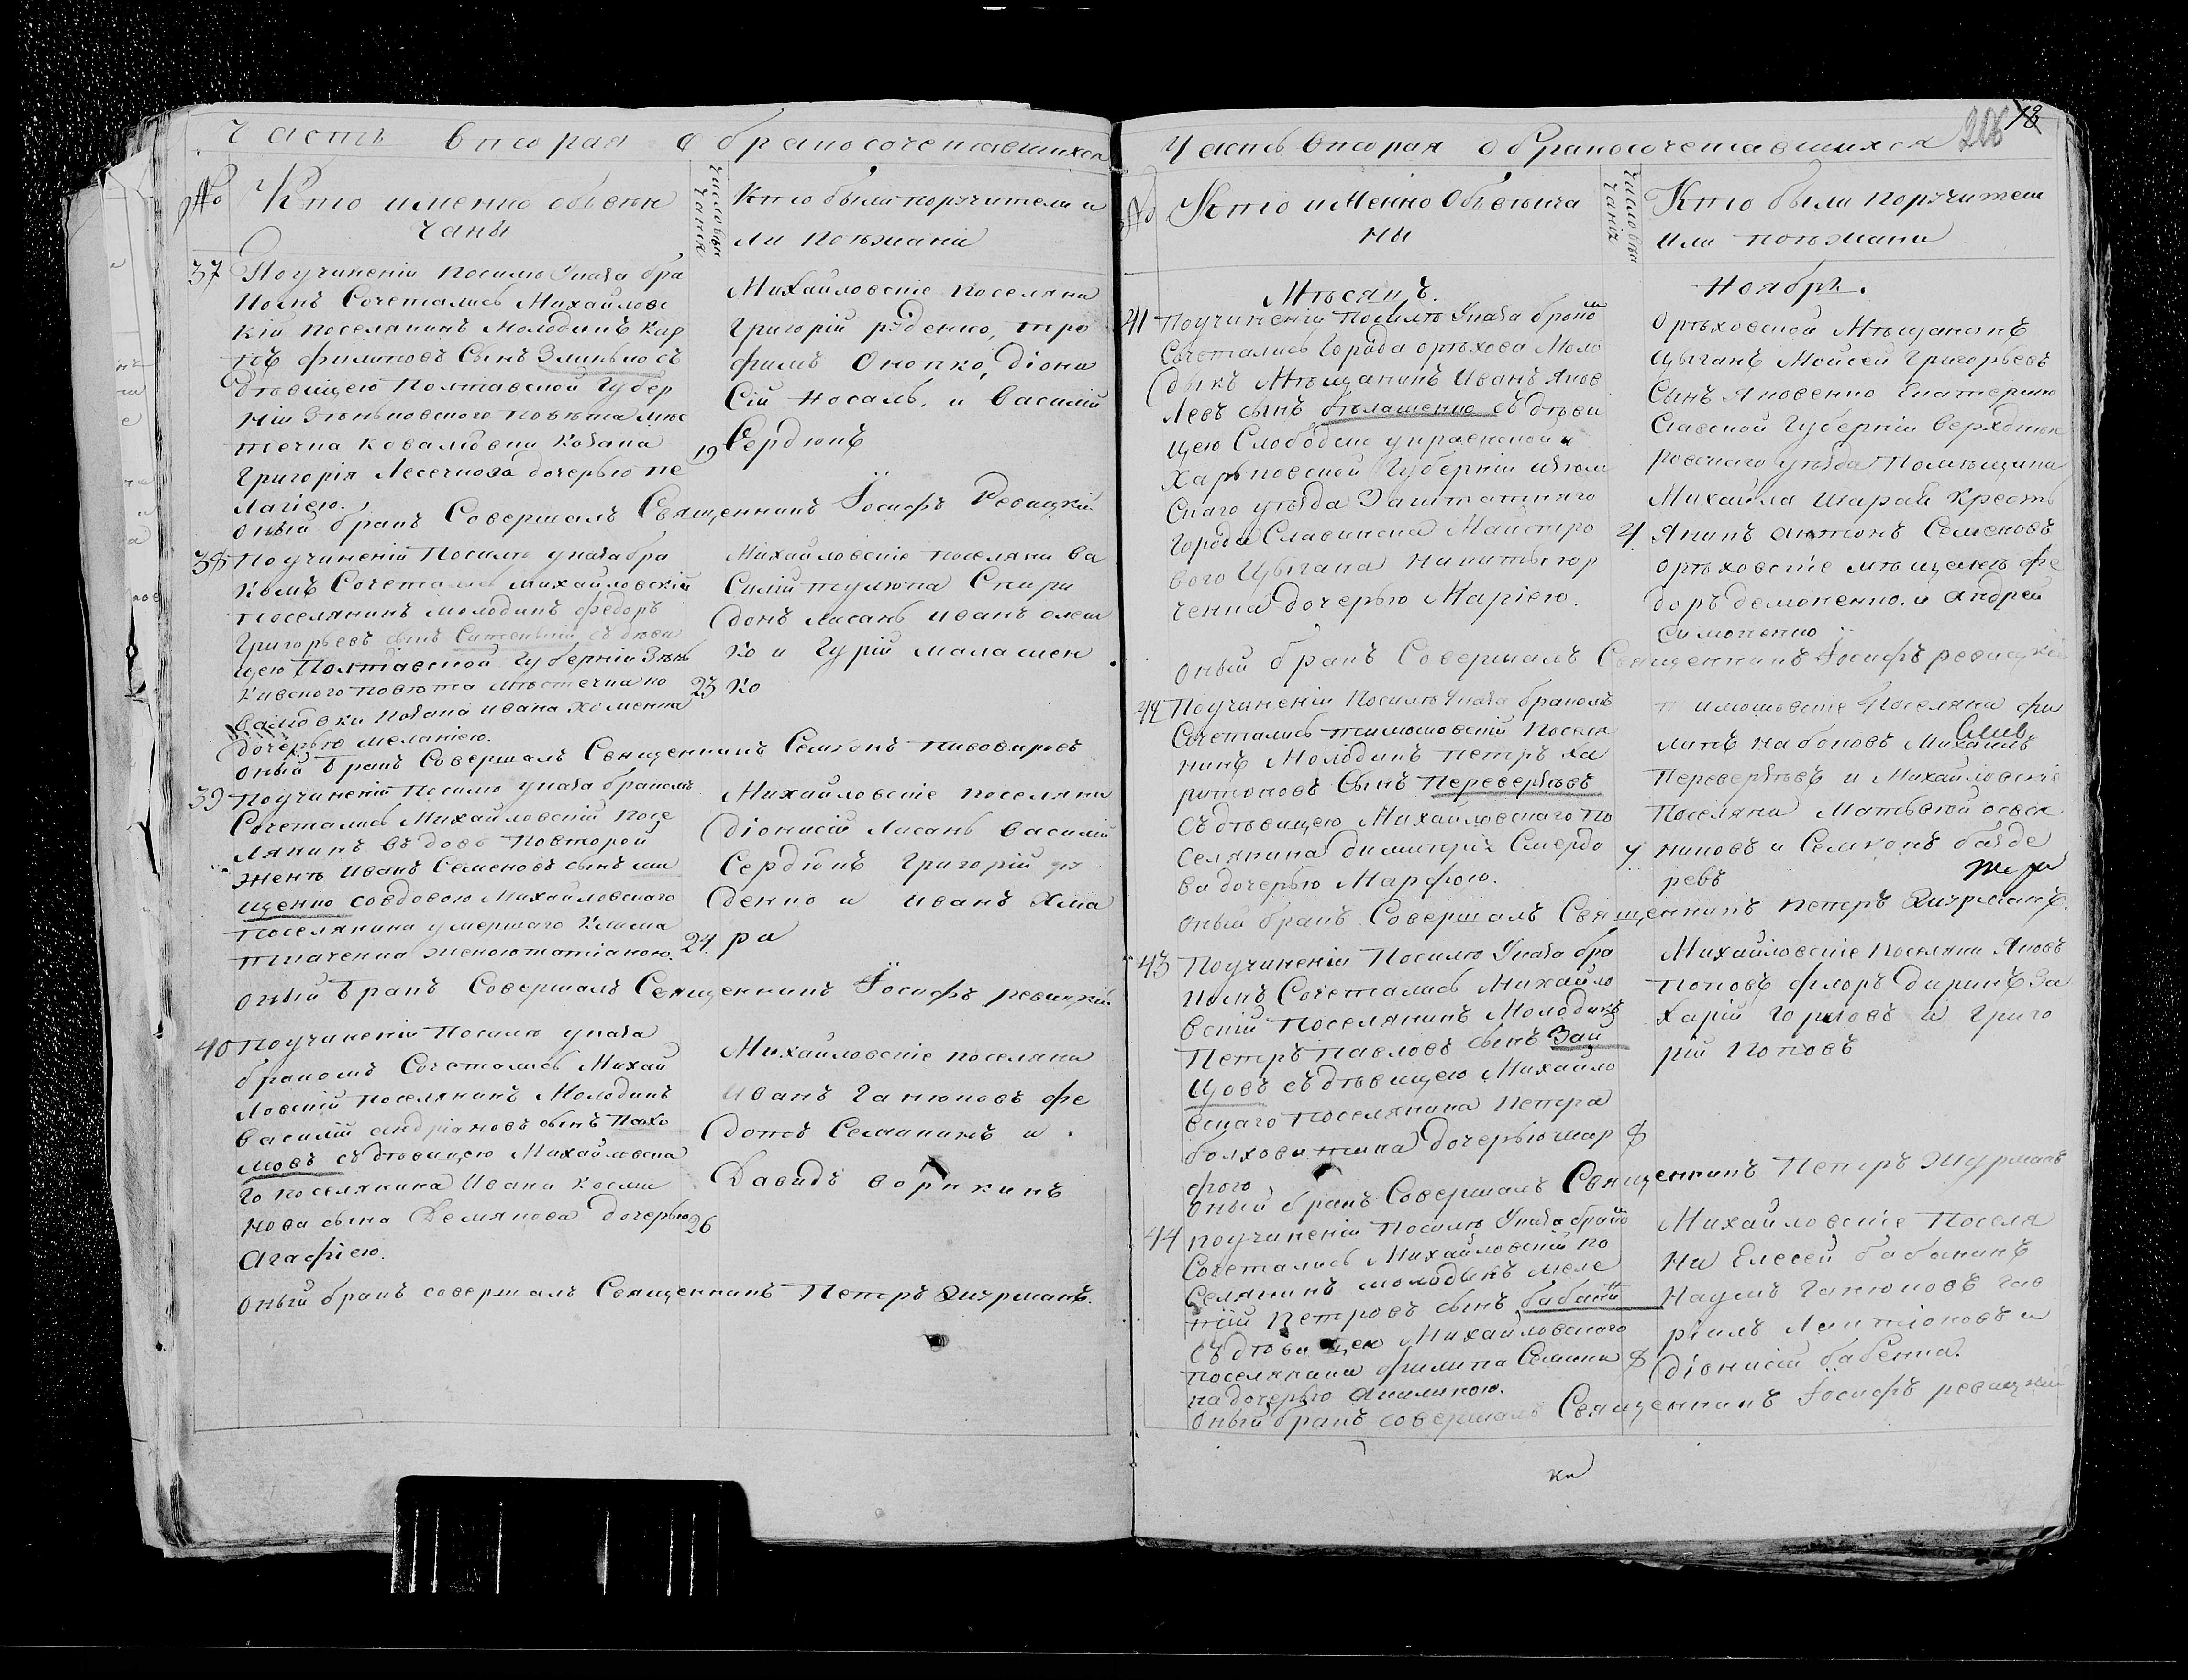 Часть вторая о бракосочетавшихся
№
Кто именно обвен
чаны
Число вен
чания
Кто были поручители и
ли поезжани
37
Поучинении посилю указа бра
комъ Сочетались Михайловс
кій поселянинъ молодикъ Кар
пъ филиповъ Сынъ Зинько съ
девицею Полтавской Губер
ніи Зеньковского повета мес
течка Ковалювки Козака
Григорія Лесечкова дочерью пе
лагіею.
19
Михайловскіе поселяни
Григорій руденко, тро
фимъ Онопко, Діони
сій Носаль. и Василій
Сердюкъ
оный бракъ Совершалъ Священникъ Іосифъ Ревицкій
38
Поучиненій посилю указа бра
комъ Сочетались михайловскій
поселянинъ молодикъ федоръ
Григорьевъ сынъ съ деви
цею Полтавской Губерніи Зень
кивского повета местечка ко
валювки козака ивана Хоменка
дочерью меланіею.
23
Михайловскіе поселяни ва
силій тулюпа Спири
донъ лисань иванъ олеш
ко и Гурій малашен
ко
оный бракъ Совершалъ Священникъ Семионъ пивоваровъ
39
Поучиненій посилю указа бракомъ
Сочетались Михайловскій посе
лянинъ вдовъ повторой
жене Иванъ Семеновъ сынъ
щенко совдовою Михайловского
поселянина умершаго Клима
ткаченка женою татіаною.
24.
Михайловскіе поселяни
Діонисій лисань василій
Сердюкъ Григорій ру
денко и иванъ Хма
ра
оный бракъ Совершалъ Священникъ Іосифъ ревицкій
40
Поучиненій посилю указа
бракомъ Сочетались Михай
ловскій поселянинъ Молодикъ
василій андріановъ сынъ Пахо
мовъ съ девицею Михайловска
го поселянина Ивана Косми
нова сына Демякова дочерью
Агафіею.
26
Михайловскіе поселяни
Иванъ Ганюковъ фе
дотъ Семикинъ и
Давидъ ворикинъ
оный бракъ совершалъ Священникъ Петръ Жирманъ.
Часть вторая о бракосочетавшихся
206
18
№
Кто именно Обвенча
ны
Число вен
чанія
Кто были поручители
или поезжани
Месяцъ.
Ноябрь.
41
Поучиненій посилю Указа брако
Сочетались Города орехова моло
дыкъ Мещанинъ Иванъ Яков
левъ сынъ белашенко съ деви
цею Слободско украенской и
Харьковской Губерніи изюм
скаго уезда Заштатнаго
города Славинска Майстро
вого Цыгана Никиты гор
ченка дочерью Маріею.
4.
Ореховской Мещанинъ
цыганъ Мойсей Григорьевъ
Сынъ Яковенко Екатерино
славской Губерніи верходнеп
ровского уезда Помещика
Михайла Шарай Кресть
янинъ антонъ Семеновъ
Ореховскіе мещане фе
доръ демоненко. и андрей
симоненко
оный бракъ Совершалъ Священникъ Іосифъ ревицкій
42
Поучиненій Посилю Указа бракомъ
Сочетались тимошовскій поселя
нинъ Молодикъ петръ ха
ритоновъ сынъ Переверзевъ
съ девицею Михайловского по
селянина димитрія Смердо
ва дочерью Марфою.
тимошовскіе поселяни фи
липъ набоковъ Михаилъ
Переверзевъ и Михайловскіе
поселяни Матьвей овся
никовъ и Семионъ базде
ревъ
оный бракъ Совершалъ Священникъ Петръ Жирманъ.
43
Поучиненій Посилю Указа бра
комъ Сочетались Михайло
вскій поселянинъ Молодикъ
Петръ павловъ сынъ Заи
цовъ съ девицею Михайло
вскаго поселянина Петра
болховитина дочерью мар
фою
8
Михайловскіе Поселяни Яковъ
поповъ флоръ Дикинъ За
харій Горловъ и Григо
рій Поповъ
оный бракъ Совершалъ Священникъ Петръ Журманъ
44
поучиненій Посилю Указа брако
Сочетались Михайловскій по
селянинъ молодыкъ меле
тій Петровъ сынъ бабани
съ девицею Михайловского
поселянина филипа Семики
на дочерью Акилиною.
8
Михайловскіе поселя
ни Елесей бабанинъ
Наумъ Ганюковъ гав
рііилъ Лактіоновъ и
Діонисій бабенка.
оный бракъ совершалъ Священникъ Іосифъ ревицкій